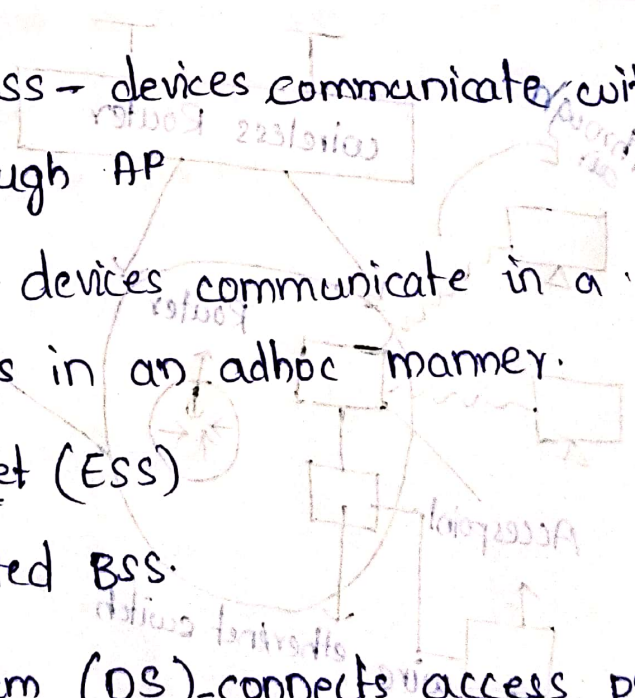 ss - devices communicate wit
ugh AP
devices communicate in a
s in an adhoc manner.
et (ESS)
ed BSS.
m (DS) - connects access p